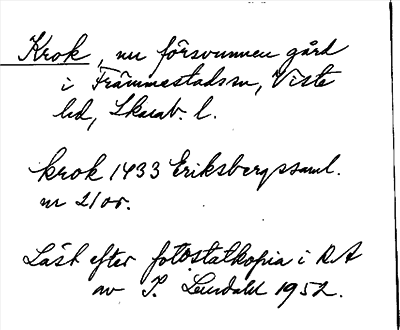 Krok, nu försvunnen gård
i Främmestadssn, Viste
hd, Skarab. l.
krok 1433 Eriksbergssaml.
nr 2/00.
Läst efter fotostatkopia i RA
av I. Lundahl 1952.